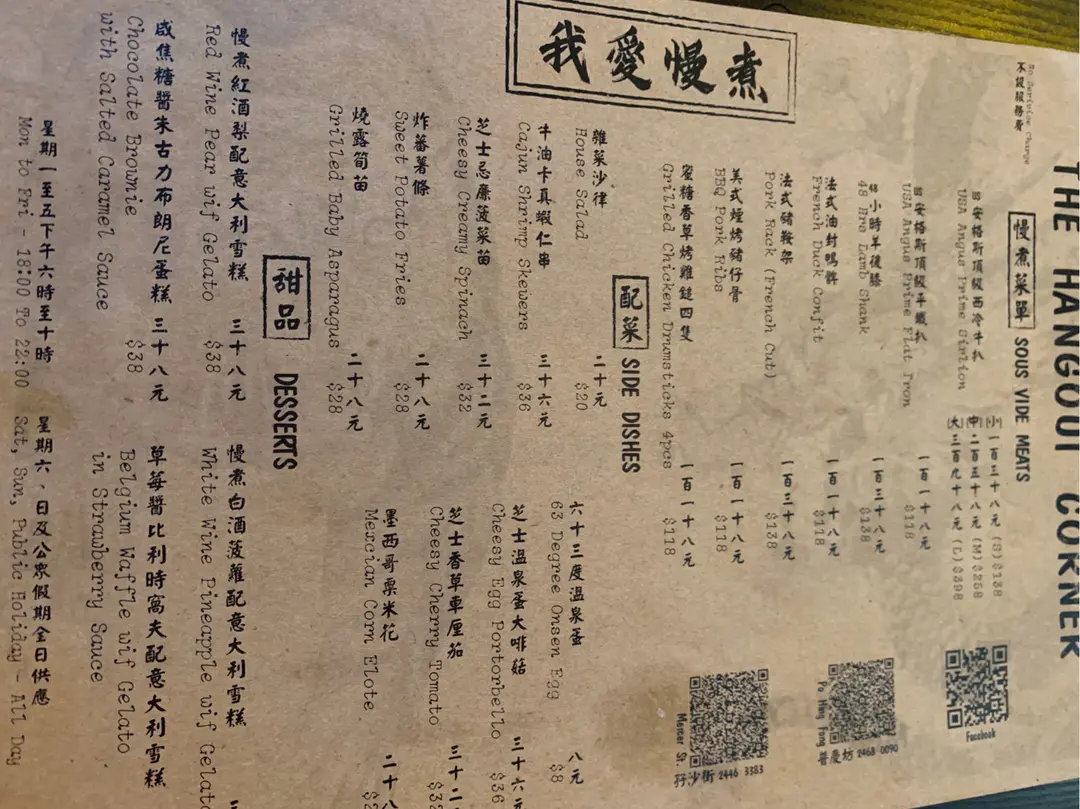 THE HANGOUT CORNER
No Service Charge
不設服務費
慢煮菜單 SOUS VIDE MEATS
安格斯頂級西冷牛扒 小 一百三十八元 (S) $138
USA Angus Prime Sirlion 中 二百五十八元 (M) $258
大 三百九十八元 (L) $398
安格斯頂級平鐵扒 一百一十八元
USA Angus Prime Flat Iron $118
48 小時羊後膝 一百三十八元
48 Hrs Lamb Shank $138
法式油封鴨髀 一百一十八元
French Duck Confit $118
法式豬鞍架 一百三十八元
Pork Rack (French Cut) $138
美式煙烤豬仔骨 一百一十八元
BBQ Pork Ribs $118
蜜糖香草烤雞鎚四隻 一百一十八元
Grilled Chicken Drumsticks 4pcs $118
Facebook
Po Hing Fong
普慶坊 2468 0090
Mercer St.
孖沙街 2446 3383
我愛慢煮
配菜 SIDE DISHES
雜菜沙律 二十元
House Salad $20
牛油卡真蝦仁串 三十六元
Cajun Shrimp Skewers $36
芝士忌廉菠菜苗 三十二元
Cheesy Creamy Spinach $32
炸蕃薯條 二十八元
Sweet Potato Fries $28
燒露筍苗 二十八元
Grilled Baby Asparagus $28
六十三度溫泉蛋 八元
63 Degree Onsen Egg $8
芝士溫泉蛋大啡菇 三十六元
Cheesy Egg Portorbello $36
芝士香草車厘茄 三十二
Cheesy Cherry Tomato
墨西哥粟米花 二十八
Mexcian Corn Elote
甜品 DESSERTS
慢煮紅酒梨配意大利雪糕 三十八元
Red Wine Pear wif Gelato $38
咸焦糖醬朱古力布朗尼蛋糕 三十八元
Chocolate Brownie $38
with Salted Caramel Sauce
慢煮白酒菠蘿配意大利雪糕
White Wine Pineapple wif Gelato
草莓醬比利時窩夫配意大利雪糕
Belgium Waffle wif Gelato
in Strawberry Sauce
星期一至五下午六時至十時 星期六，日及公眾假期全日供應
Mon to Fri - 18:00 To 22:00 Sat, Sun, Public Holiday - All Day